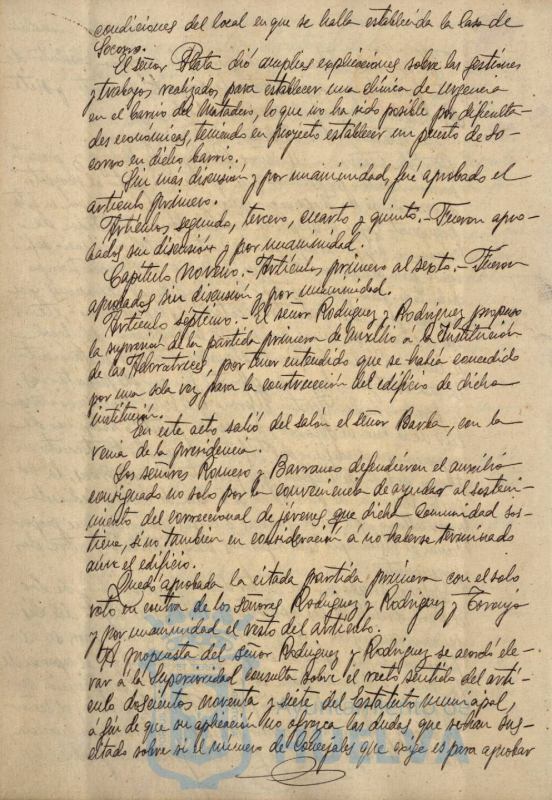 condiciones del local en que se halla establecida la Casa de
Socorro.
El señor Plata dió amplias explicaciones sobre las gestiones
y trabajos realizados para establecer una clínica de urgencia
en el barrio del Matadero, lo que no ha sido posible por dificulta-
des económicas, teniendo en proyecto establecer un puesto de so-
corro en dicho barrio.
Sin mas discusión y por unanimidad, fué aprobado el
artículo primero.
Artículos segundo, tercero, cuarto y quinto.- Fueron apro-
bados sin discusión y por unanimidad.
Capítulo noveno.- Artículos primero al sexto.- Fueron
aprobados sin discusión y por unanimidad.
Artículo séptimo.- El señor Rodríguez y Rodríguez propuso
la supresión de la partida primera de Auxilio a la Institución
de las Adoratrices, por tener entendido que se había concedido
por una sola vez para la construcción del edificio de dicha
institución.
En este acto salió del salón el señor Barba, con la
venia de la presidencia.
Los señores Romero y Barranco defendieron el auxilio
consignado no solo por la conveniencia de ayudar al sosteni-
miento del correccional de jóvenes que dicha Comunidad sos-
tiene, sino también en consideración á no haberse terminado
aun el edificio.
Quedó aprobada la citada partida primera con el solo
voto en contra de los señores Rodríguez y Rodríguez y
y por unanimidad el resto del artículo.
A propuesta del señor Rodríguez y Rodríguez se acordó ele-
var á la Superioridad consulta sobre el recto sentido del artí-
culo doscientos noventa y siete del Estatuto municipal,
á fin de que su aplicación no ofrezca las dudas que se han sus-
citado sobre si el número de Concejales que exige es para aprobar
HUELVA